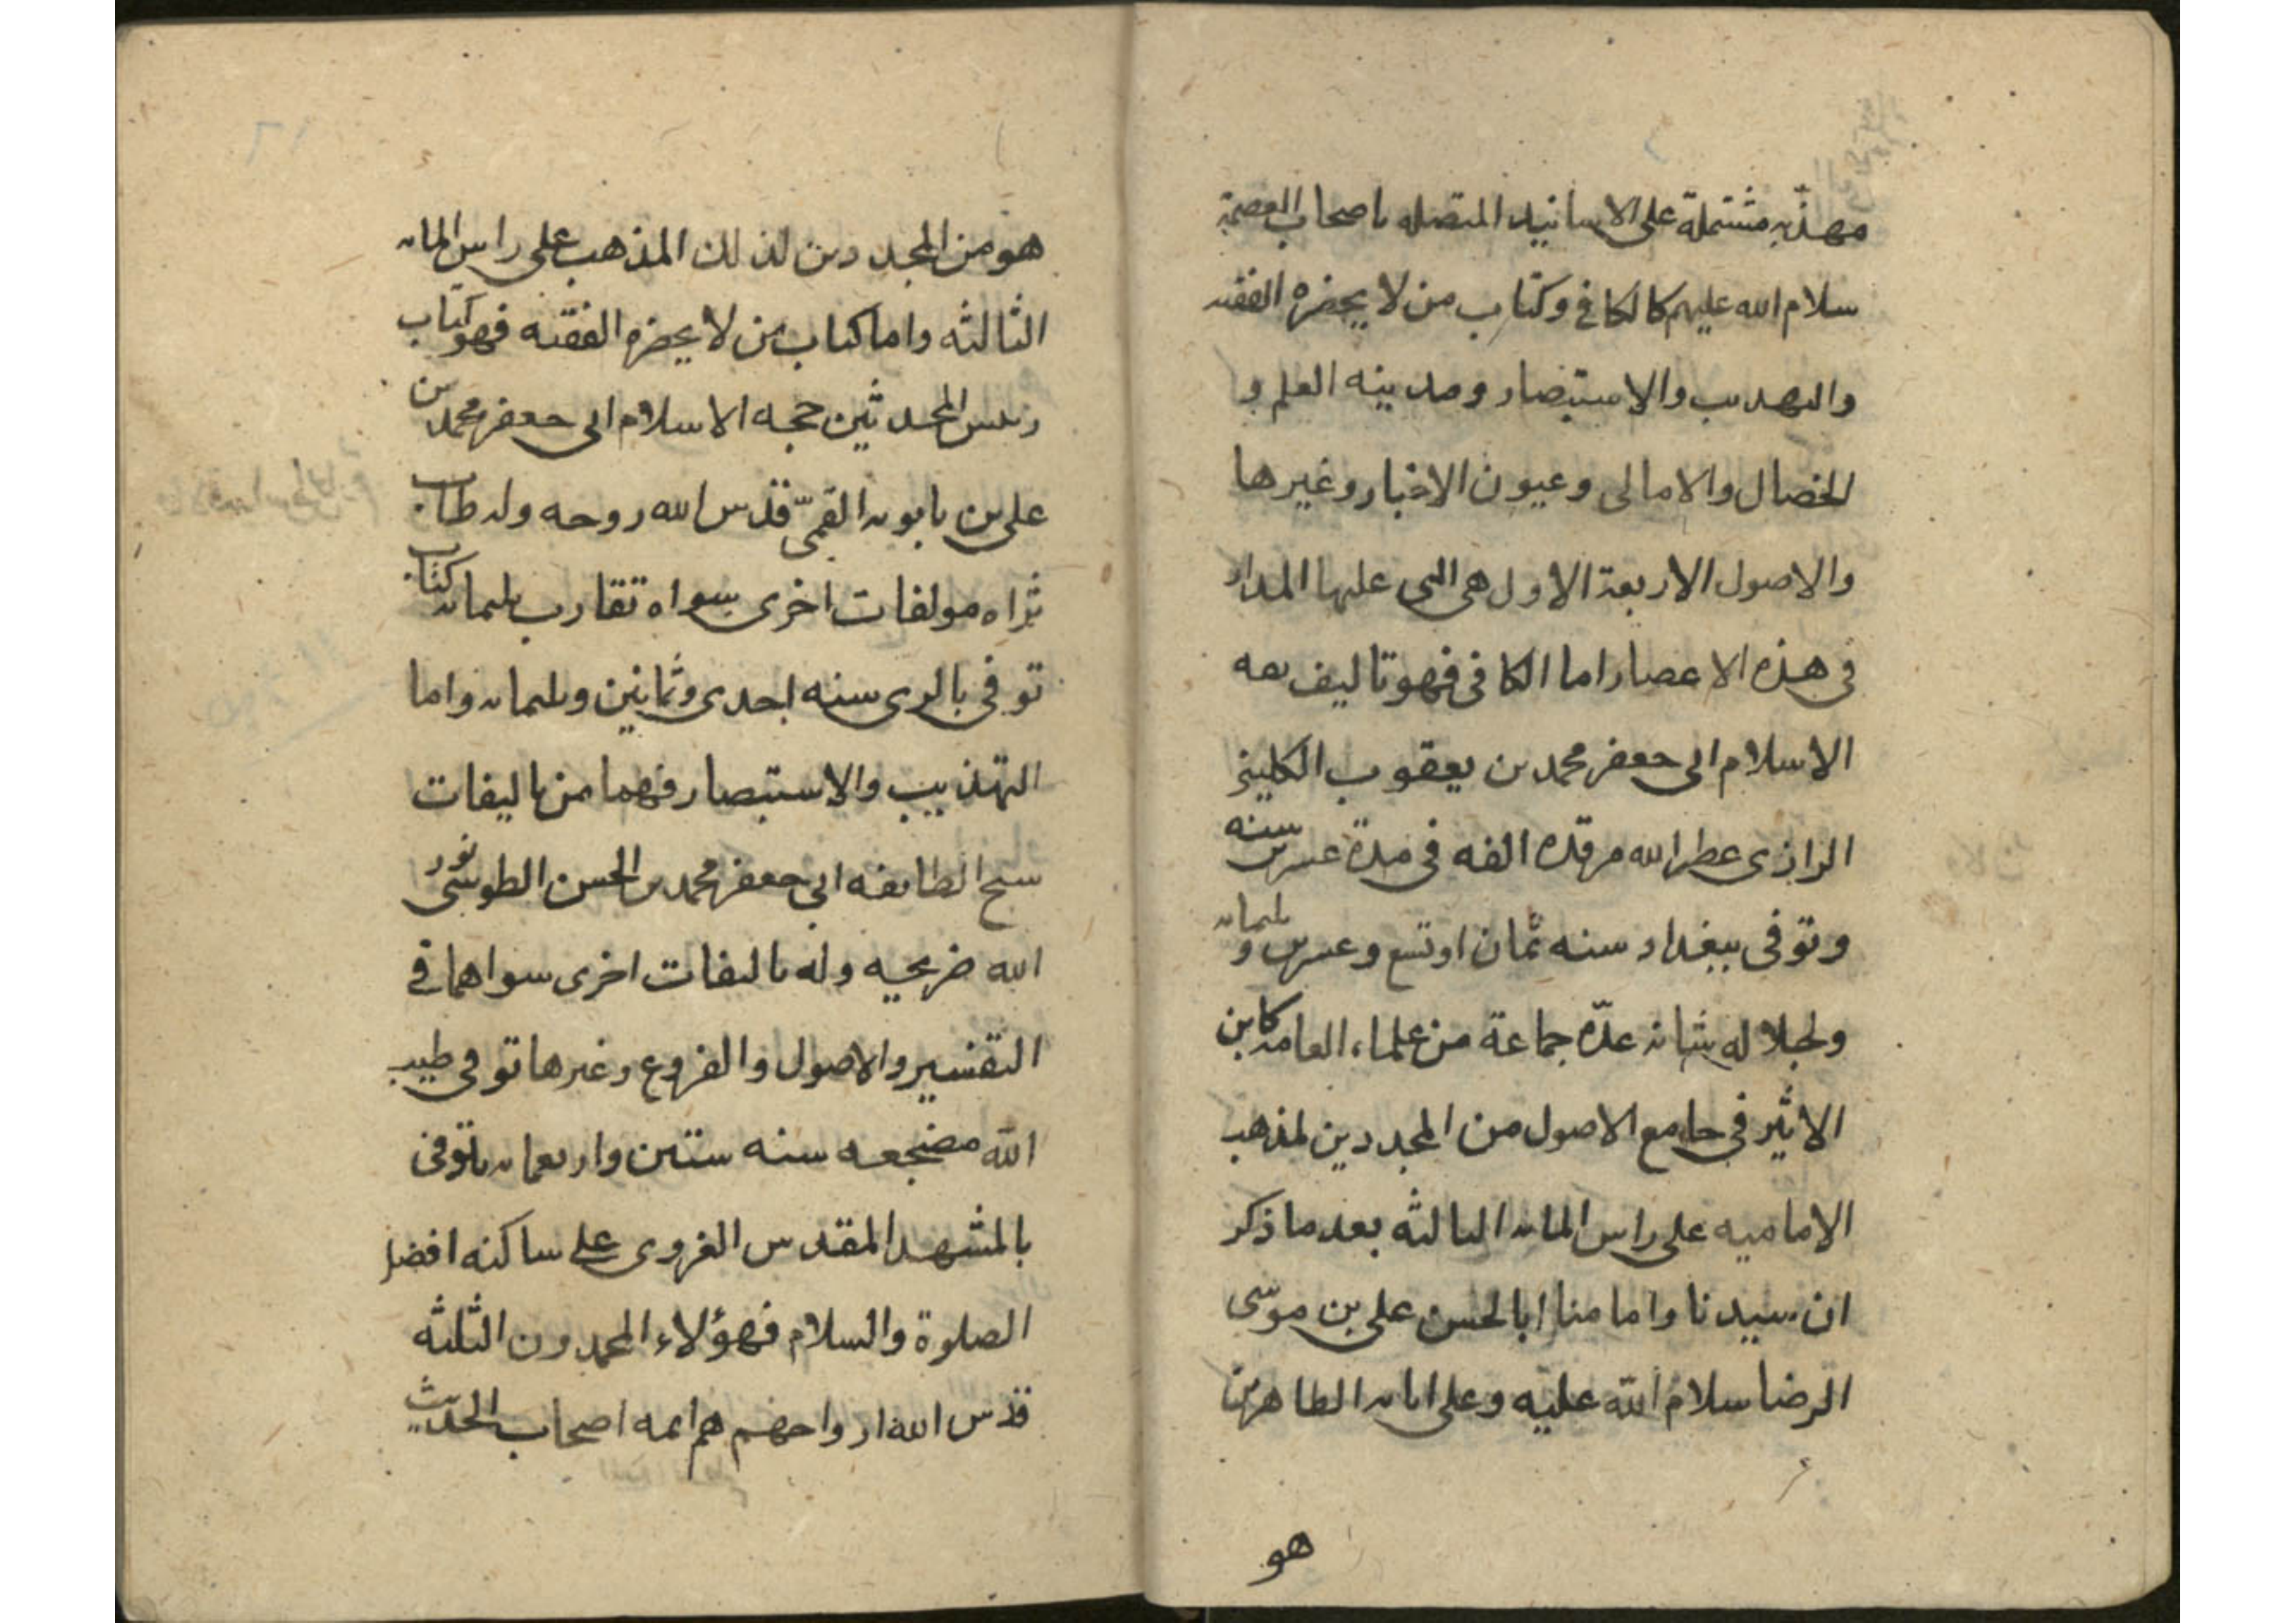 مهذبه مشتملة على الاسانيد المتصله باصحاب العصمة
سلام الله عليهم كالكافي وكتاب من لا يحضره الفقيه
والتهذيب والاستبصار ومدينه العلم و
الخصال والامالى وعيون الاخبار وغيرها
والاصول الاربعة الاول هى التى عليها المدار
فى هذه الاعصار اما الكافى فهو تاليف ثقه
الاسلام ابى جعفر محمد بن يعقوب الكليني
الرازى عطر الله مرقده الفه فى مدة عشرين سنه
وتوفى ببغداد سنه ثمان او تسع وعشرين و ثلثمائه
ولجلاله شانه عدّه جماعة من علماء العامه كابن
الاثير فى جامع الاصول من المجددين لمذهب
الاماميه على راس المائه الثالثه بعد ما ذكر
ان سيدنا وامامنا ابا الحسن على بن موسى
الرضا سلام الله عليه وعلى ابائه الطاهرين
هو
هو من المجددين لذلك المذهب على راس المائه
الثالثه واما كتاب من لا يحضره الفقيه فهو كتاب
رئيس المحدثين حجه الاسلام ابى جعفر محمد بن
على بن بابويه القمىّ قدس الله روحه وله طاب
ثراه مولفات اخرى سواه تقارب ثلثمائه كتاب
توفى بالرى سنه احدى وثمانين وثلثمائه واما
التهذيب والاستبصار فهما من تاليفات
شيخ الطايفه ابى جعفر محمد بن الحسن الطوسى نور
الله ضريحيه وله تاليفات اخرى سواهما في
التفسير والاصول والفروع وغيرها توفى طيب
الله مضجعه سنه ستين واربعمائه توفى
بالمشهد المقدس الغروى على ساكنه افضل
الصلوة والسلام فهؤلاء المحمدون الثلثه
قدس الله ارواحهم هم ائمه اصحاب الحديث